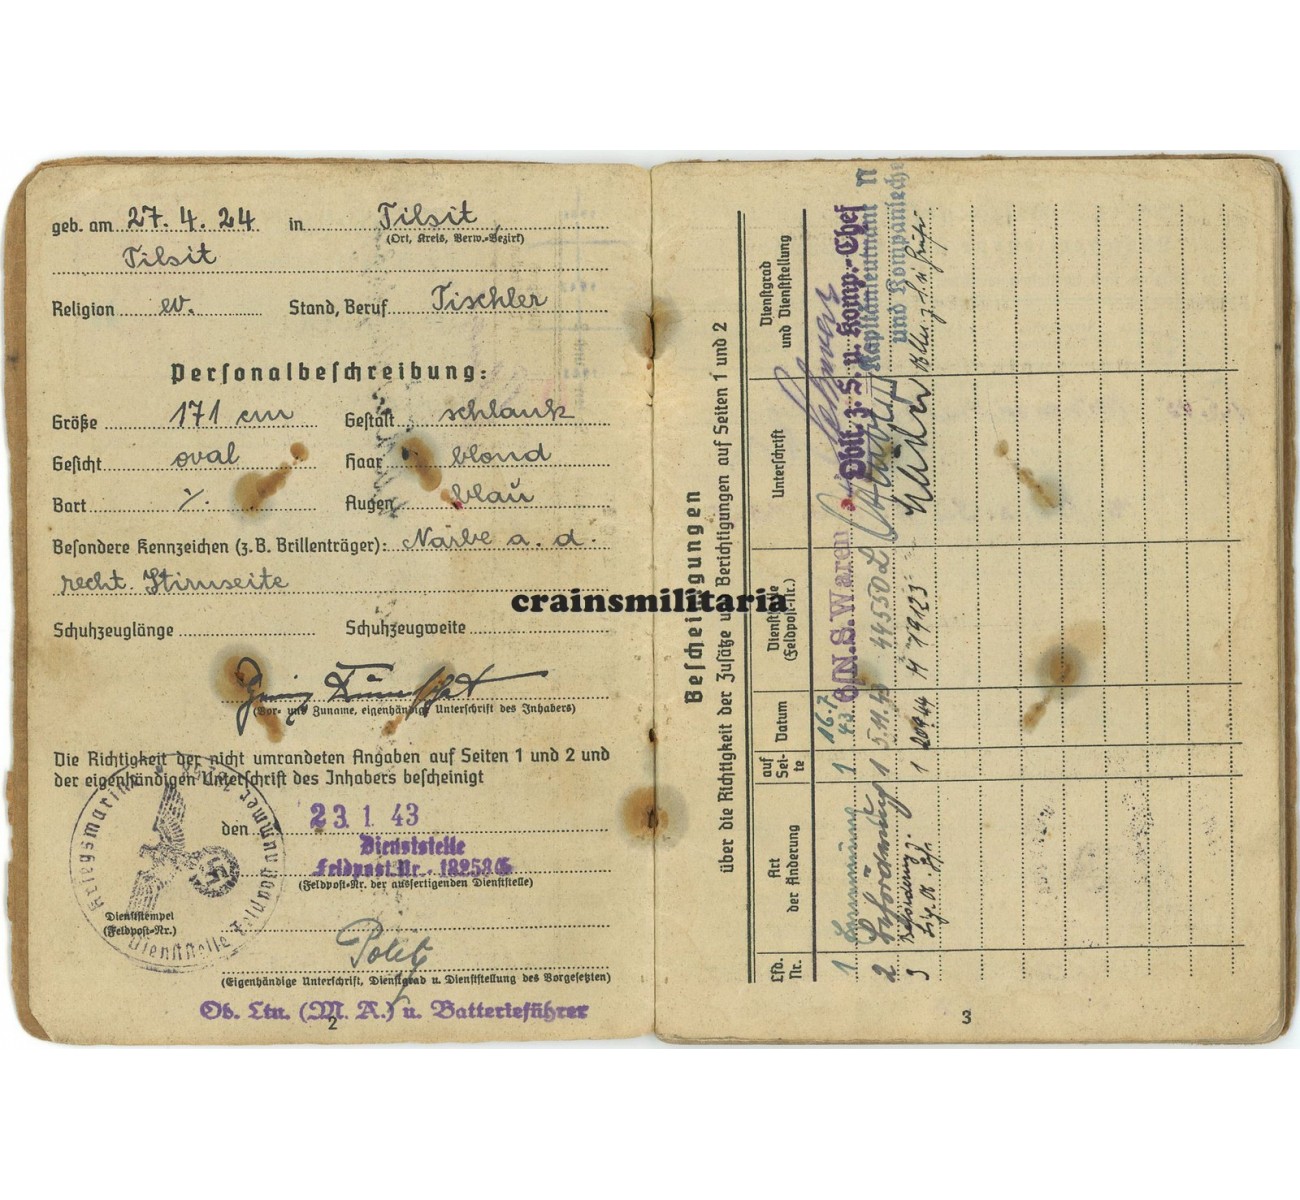 geb. am 27. 4. 24 in Tilsit
(Ort, Kreis, Verw.-Bezirk)
Tilsit
Religion ev. Stand, Beruf Tischler
Personalbeschreibung:
Größe 171 cm Gestalt schlank
Gesicht oval Haar blond
Bart ٪ Augen blau
Besondere Kennzeichen (z.B. Brillenträger): Narbe a. d.
recht. Stirnseite
Schuhzeuglänge Schuhzeugweite
Heinz
(Vor- und Zuname, eigenhändige Unterschrift des Inhabers)
Die Richtigkeit der nicht umrandeten Angaben auf Seiten 1 und 2 und
der eigenhändigen Unterschrift des Inhabers bescheinigt
den 23. 1. 43
Dienststelle
Feldpost-Nr.
(Feldpost-Nr. der ausfertigenden Dienststelle)
Kriegsmarine
Dienststelle Feldpostnummer
Dienststempel
(Feldpost-Nr.)
(Eigenhändige Unterschrift, Dienstgrad u. Dienststellung des Vorgesetzten)
Ob. Ltn. (M. A.) u. Batterieführer
2
crainsmilitaria
Bescheinigungen
über die Richtigkeit der Zusätze und Berichtigungen auf Seiten 1 und 2
Lfd. Nr.
Art der Änderung
auf Seite
Datum
Dienststelle (Feldpost-Nr.)
Unterschrift
Dienstgrad und Dienststellung
1 1 16.7.43 6/N.S. Waren Oblt. z. S. u. Komp.-Chef
2 Beförderung 1 5.11.43 44550 L Kapitänleutnant
und Kompaniechef
3 Beförderung z. 1 20.9.44 M 19123
3